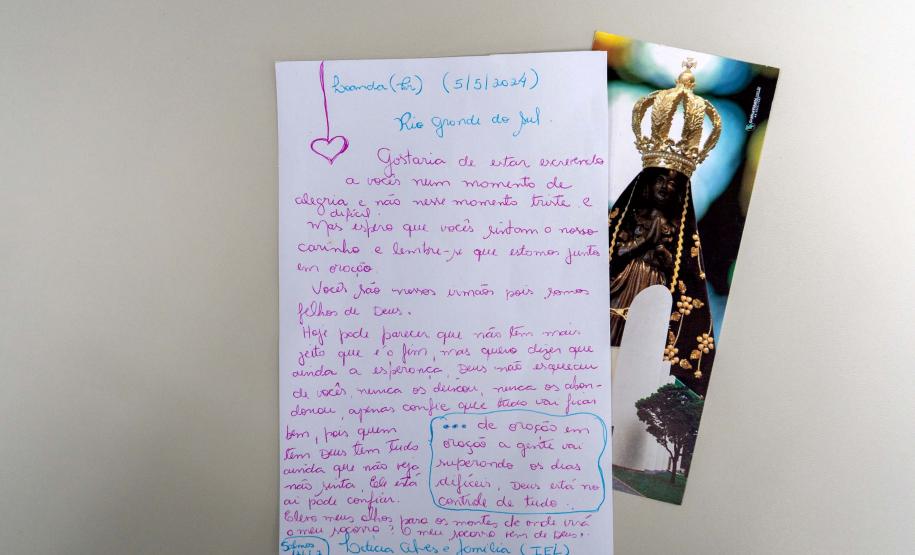 Loanda (Pr) (5/5/2024)
Rio Grande do Sul.
Gostaria de estar escrevendo
a vocês num momento de
alegria e não nesse momento triste e
difícil.
Mas espero que vocês sintam o nosso
carinho e lembre-se que estamos juntos
em oração.
Vocês são nossos irmãos pois somos
filhos de Deus.
Hoje pode parecer que não têm mais
jeito que é o fim, mas quero dizer que
ainda a esperança, Deus não esqueceu
de vocês, nunca os deixou, nunca os aban-
donou, apenas confie que tudo vai ficar
bem, pois quem
tem Deus tem tudo
ainda que não veja
não sinta, Ele está
aí pode confiar.
... de oração em
oração a gente vai
superando os dias
difíceis, Deus está no
controle de tudo.
Elevo meus olhos para os montes de onde virá
o meu socorro? O meu socorro vem de Deus.
Salmos
Letícia Alves e família (IEL)